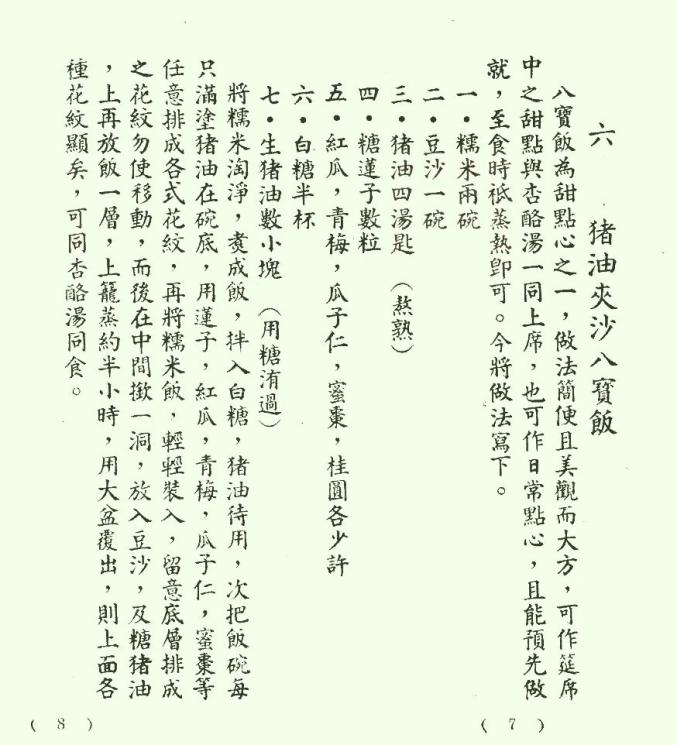 六　猪油夾沙八寶飯
八寶飯為甜點心之一，做法簡便且美觀而大方，可作筵席
中之甜點與杏酪湯一同上席，也可作日常點心，且能預先做
就，至食時祇蒸熱即可。今將做法寫下。
一・糯米兩碗
二・豆沙一碗
三・猪油四湯匙　（熬熟）
四・糖蓮子數粒
五・紅瓜，青梅，瓜子仁，蜜棗，桂圓各少許
六・白糖半杯
七・生猪油數小塊　（用糖洧過）
將糯米淘淨，煑成飯，拌入白糖，猪油待用，次把飯碗每
只滿塗猪油在碗底，用蓮子，紅瓜，青梅，瓜子仁，蜜棗等
任意排成各式花紋，再將糯米飯，輕輕裝入，留意底層排成
之花紋勿使移動，而後在中間撳一洞，放入豆沙，及糖猪油
，上再放飯一層，上籠蒸約半小時，用大盆覆出，則上面各
種花紋顯矣，可同杏酪湯同食。
( 7 )
( 8 )